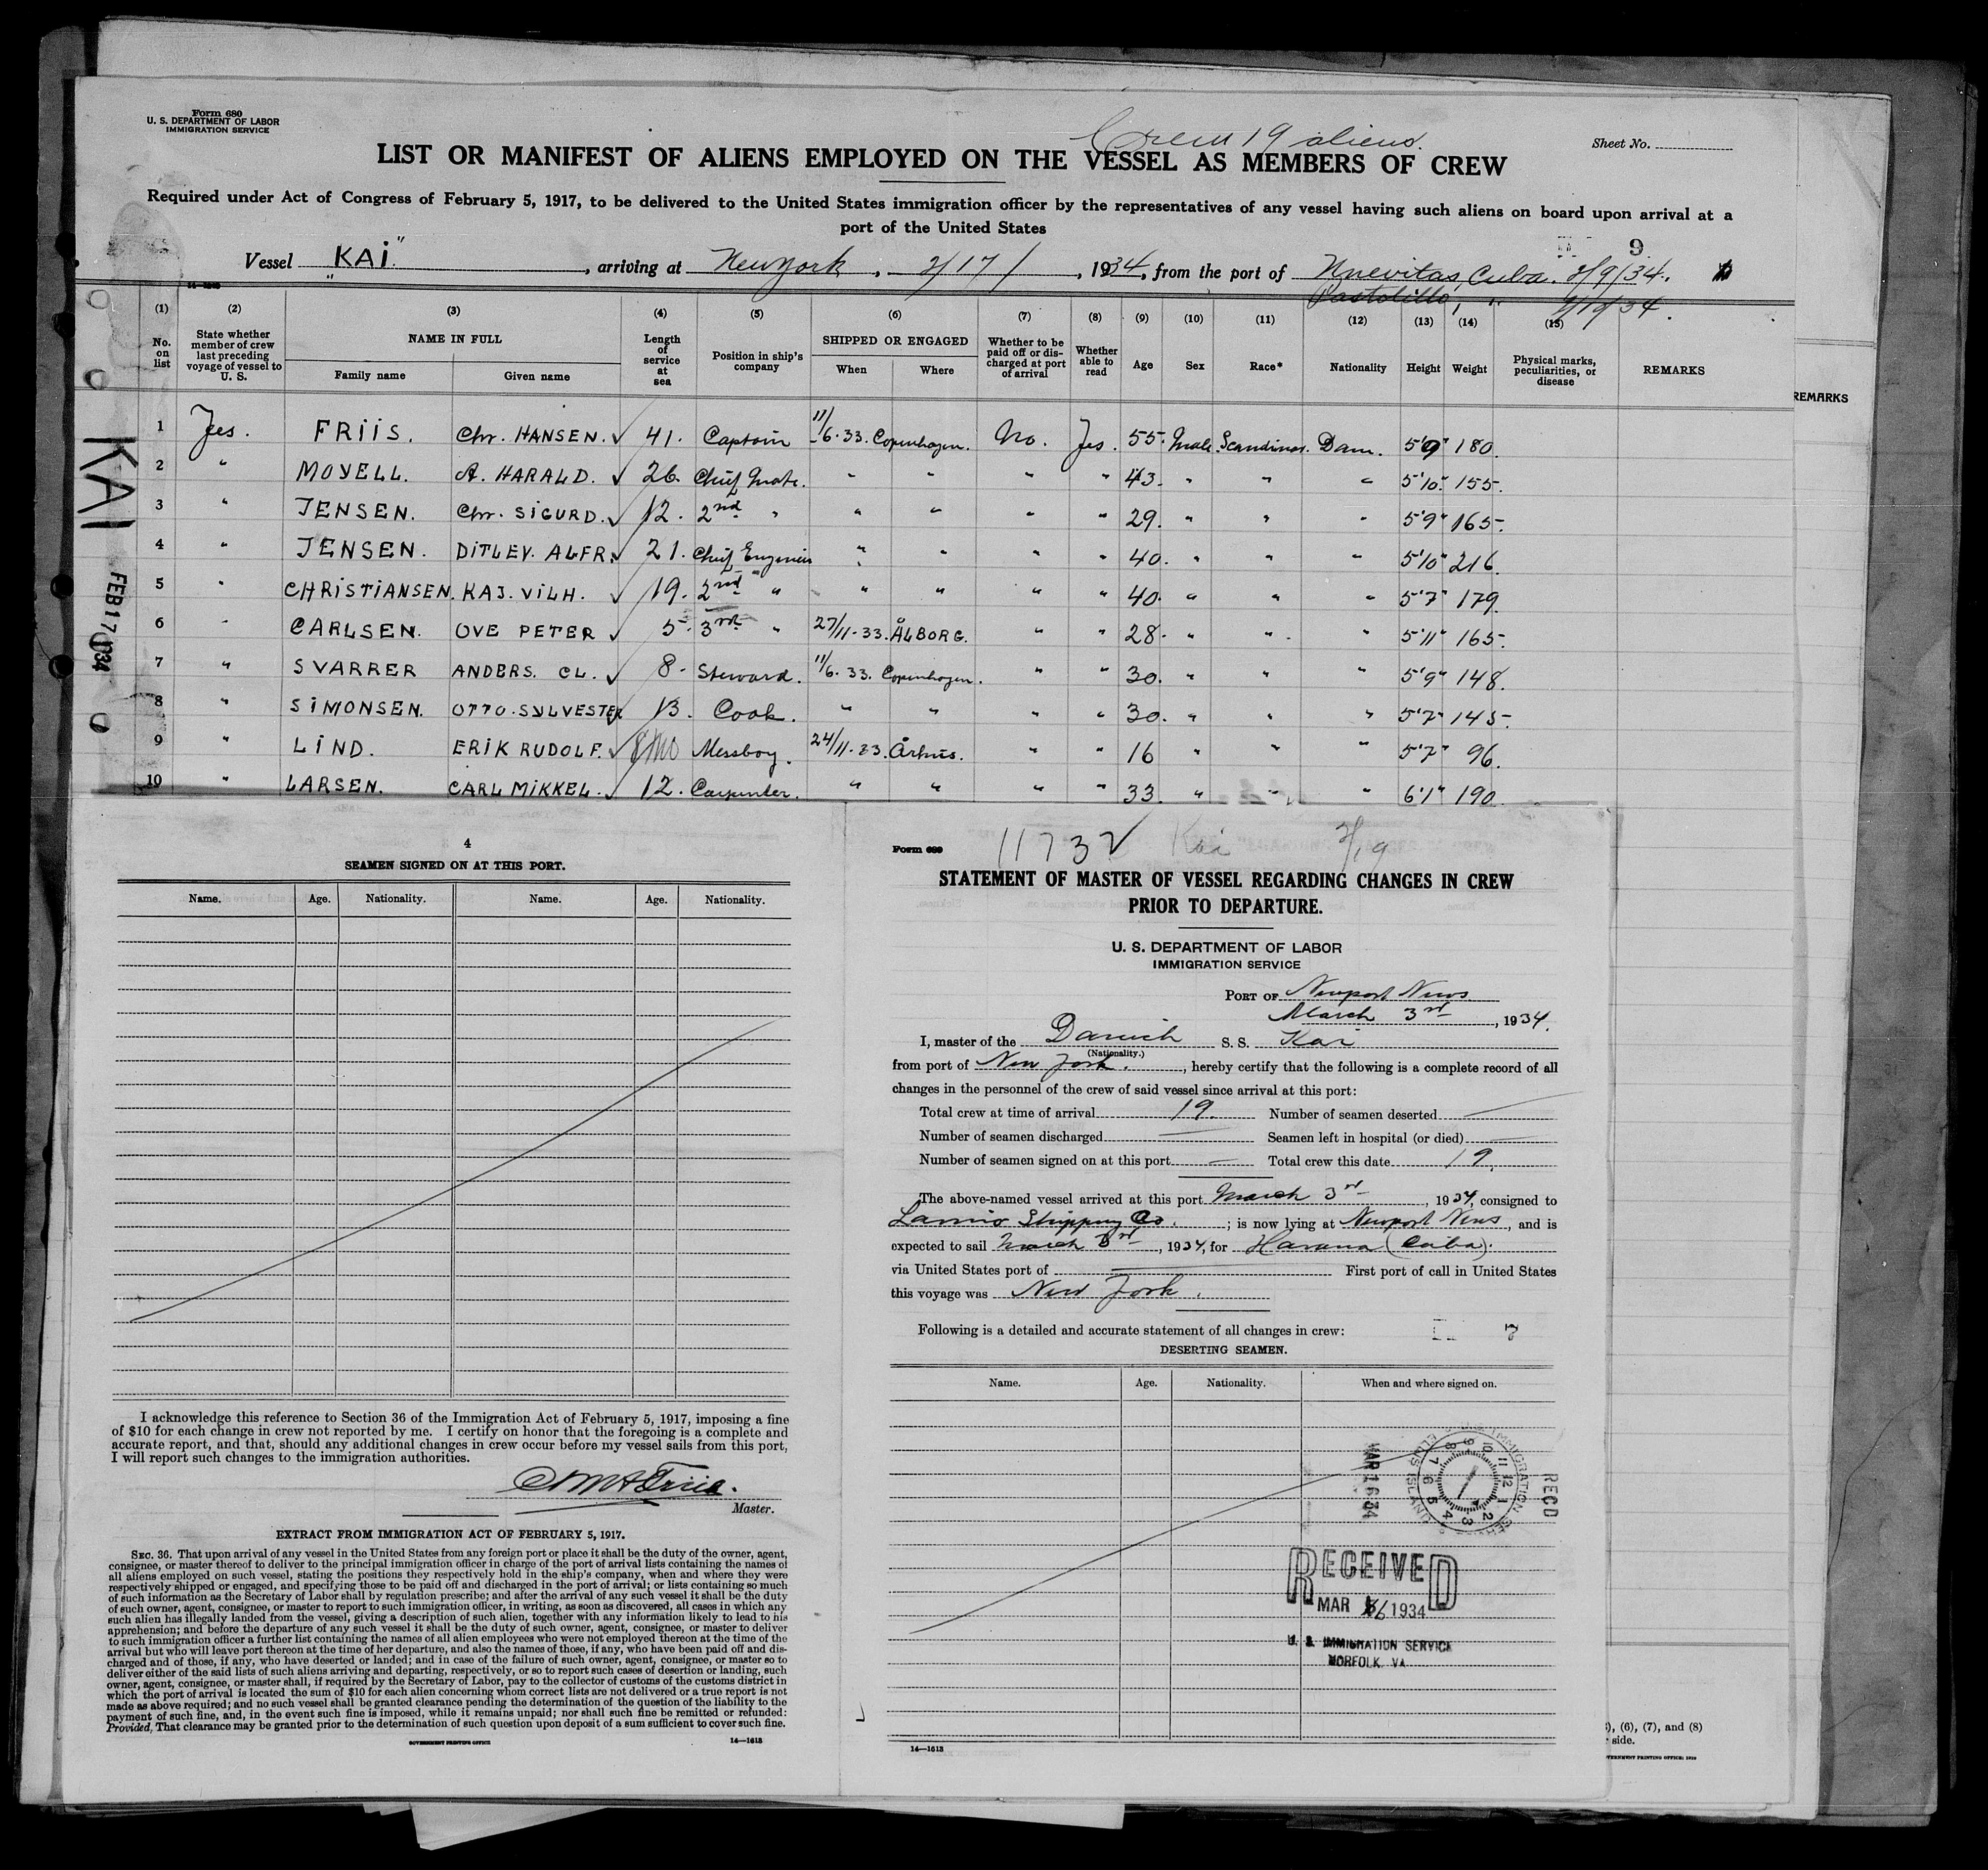 Form 680
U. S. DEPARTMENT OF LABOR
IMMIGRATION SERVICE
Crew 19 aliens.
Sheet No.
LIST OR MANIFEST OF ALIENS EMPLOYED ON THE VESSEL AS MEMBERS OF CREW
Required under Act of Congress of February 5, 1917, to be delivered to the United States immigration officer by the representatives of any vessel having such aliens on board upon arrival at a
port of the United States
9
Vessel "KAI", arriving at New York, 2/17/, 1934, from the port of Nuevitas, Cuba. 2/9/34.
Pastolillo, "
(1) (2) (3) (4) (5) (6) (7) (8) (9) (10) (11) (12) (13) (14) (15)
No. on list
State whether member of crew last preceding voyage of vessel to U. S.
NAME IN FULL
Family name Given name
Length of service at sea
Position in ship's company
SHIPPED OR ENGAGED
When Where
Whether to be paid off or discharged at port of arrival
Whether able to read
Age Sex Race* Nationality Height Weight
Physical marks, peculiarities, or disease
REMARKS
REMARKS
1 Yes. FRIIS. Chr. HANSEN. 41. Captain 11/6.33. Copenhagen. No. Yes. 55. Male. Scandinav. Dam. 5'9" 180.
2 " MOYELL. A. HARALD. 26. Chief Mate. " " " " 43. " " " 5'10" 155.
3 " JENSEN. Chr. SIGURD. 12. 2nd " " " " " 29. " " " 5'9" 165.
4 " JENSEN. DITLEV. ALFR. 21. Chief Engineer " " " " 40. " " " 5'10" 216.
5 " CHRISTIANSEN. KAJ. VILH. 19. 2nd " " " " " 40. " " " 5'7" 179.
6 " CARLSEN. OVE PETER 5. 3rd " 27/11-33. ÅLBORG. " " 28. " " " 5'11" 165.
7 " SVARRER ANDERS. CL. 8. Steward. 11/6.33. Copenhagen. " " 30. " " " 5'9" 148.
8 " SIMONSEN. OTTO. SYLVESTER 13. Cook. " " " " 30. " " " 5'7" 145.
9 " LIND. ERIK RUDOLF. 8 mo Messboy. 24/11-33. Århus. " " 16 " " " 5'7" 96.
10 " LARSEN. CARL MIKKEL. 12. Carpenter. " " " " 33. " " " 6'1" 190.
KAI
FEB 17 1934
4
SEAMEN SIGNED ON AT THIS PORT.
Name. Age. Nationality. Name. Age. Nationality.
I acknowledge this reference to Section 36 of the Immigration Act of February 5, 1917, imposing a fine
of $10 for each change in crew not reported by me. I certify on honor that the foregoing is a complete and
accurate report, and that, should any additional changes in crew occur before my vessel sails from this port,
I will report such changes to the immigration authorities.
Master.
EXTRACT FROM IMMIGRATION ACT OF FEBRUARY 5, 1917.
SEC. 36. That upon arrival of any vessel in the United States from any foreign port or place it shall be the duty of the owner, agent,
consignee, or master thereof to deliver to the principal immigration officer in charge of the port of arrival lists containing the names of
all aliens employed on such vessel, stating the positions they respectively hold in the ship's company, when and where they were
respectively shipped or engaged, and specifying those to be paid off and discharged in the port of arrival; or lists containing so much
of such information as the Secretary of Labor shall by regulation prescribe; and after the arrival of any such vessel it shall be the duty
of such owner, agent, consignee, or master to report to such immigration officer, in writing, as soon as discovered, all cases in which any
such alien has illegally landed from the vessel, giving a description of such alien, together with any information likely to lead to his
apprehension; and before the departure of any such vessel it shall be the duty of such owner, agent, consignee, or master to deliver
to such immigration officer a further list containing the names of all alien employees who were not employed thereon at the time of the
arrival but who will leave port thereon at the time of her departure, and also the names of those, if any, who have been paid off and dis-
charged and of those, if any, who have deserted or landed; and in case of the failure of such owner, agent, consignee, or master so to
deliver either of the said lists of such aliens arriving and departing, respectively, or so to report such cases of desertion or landing, such
owner, agent, consignee, or master shall, if required by the Secretary of Labor, pay to the collector of customs of the customs district in
which the port of arrival is located the sum of $10 for each alien concerning whom correct lists are not delivered or a true report is not
made as above required; and no such vessel shall be granted clearance pending the determination of the question of the liability to the
payment of such fine, and, in the event such fine is imposed, while it remains unpaid; nor shall such fine be remitted or refunded:
Provided, That clearance may be granted prior to the determination of such question upon deposit of a sum sufficient to cover such fine.
GOVERNMENT PRINTING OFFICE 14—1613
Form 689 11732 Kai 2/19
STATEMENT OF MASTER OF VESSEL REGARDING CHANGES IN CREW
PRIOR TO DEPARTURE.
U. S. DEPARTMENT OF LABOR
IMMIGRATION SERVICE
PORT OF Newport News
March 3rd, 1934.
I, master of the Danish S. S. Kai
(Nationality.)
from port of New York., hereby certify that the following is a complete record of all
changes in the personnel of the crew of said vessel since arrival at this port:
Total crew at time of arrival 19. Number of seamen deserted —
Number of seamen discharged — Seamen left in hospital (or died) —
Number of seamen signed on at this port — Total crew this date 19.
The above-named vessel arrived at this port March 3rd, 1934, consigned to
Shipping Co.; is now lying at Newport News, and is
expected to sail March 3rd, 1934, for Havana (Cuba).
via United States port of — First port of call in United States
this voyage was New York.
Following is a detailed and accurate statement of all changes in crew:
DESERTING SEAMEN.
Name. Age. Nationality. When and where signed on.
MAR 16 34
RECD
IMMIGRATION SERVICE
ELLIS ISLAND
RECEIVED
MAR 6 1934
U. S. IMMIGRATION SERVICE
NORFOLK, VA
14—1613
(6), (7), and (8)
side.
GOVERNMENT PRINTING OFFICE